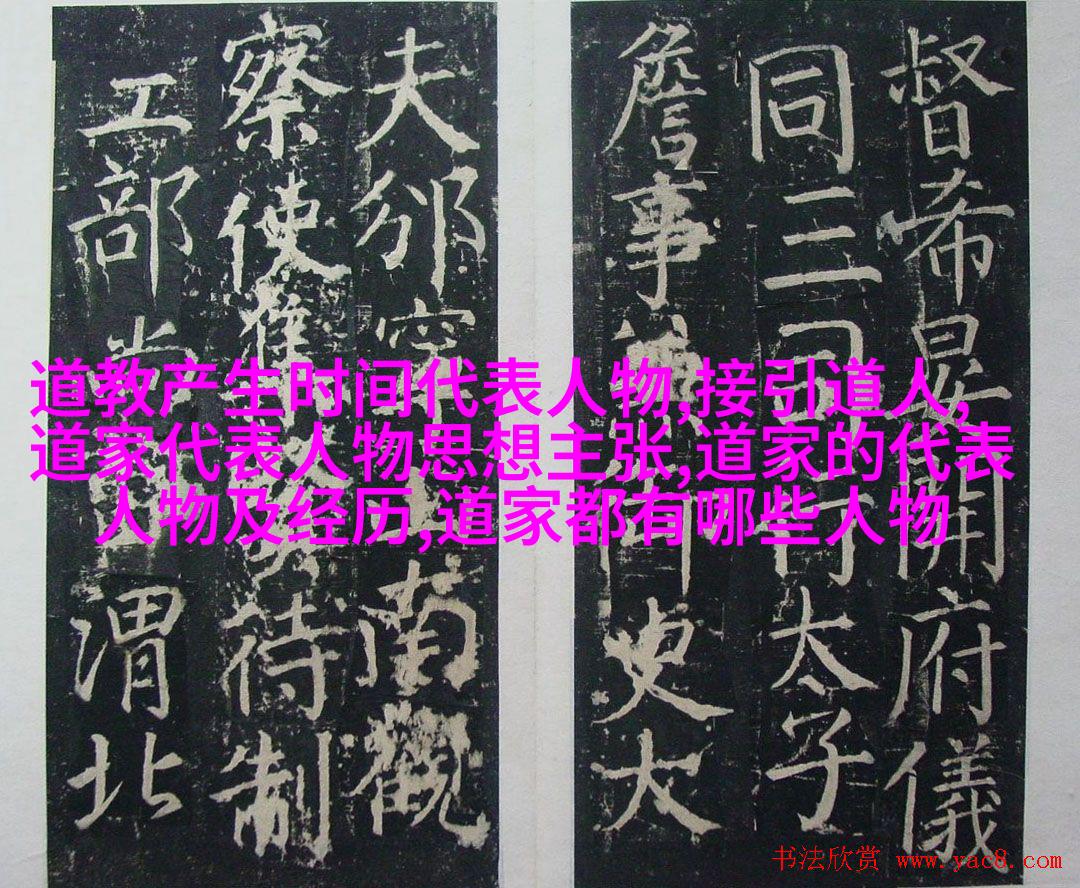 督希開府儀
同三司行太子
詹事兼御史大
夫邠寧南觀
察使待制
工部尚渭北
道教产生时间代表人物,接引道人,
道家代表人物思想主张,道家的代表
人物及经历,道家都有哪些人物
书法欣赏 www.yac8.com